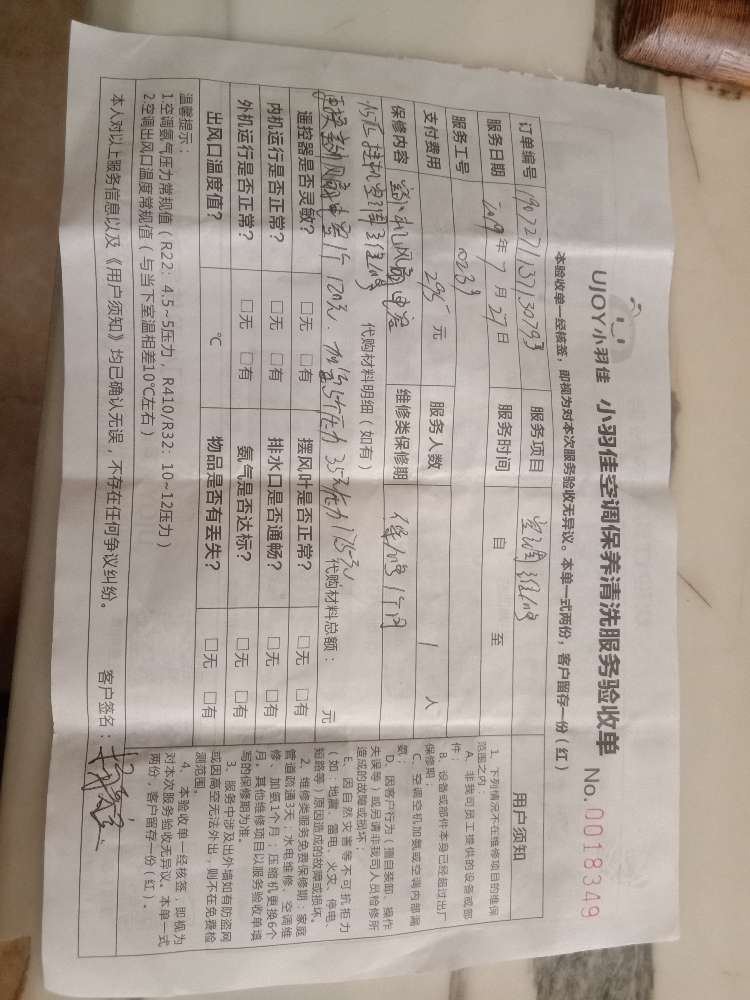 UJOY小羽佳 小羽佳空调保养清洗服务验收单 No. 0018349
本验收单一经核签，即视为对本次服务验收无异议。本单一式两份，客户留存一份（红）
订单编号 1907271137130793 服务项目 空调维修
服务日期 2019年7月27日 服务时间 自 至
服务工号 0239
支付费用 295元 服务人数 1人
保修内容 外机风扇电容 维修类保修期 保修1个月
1.5匹挂机空调维修 代购材料明细（如有）
更换室外风扇电容1个120元. 加5个压力35元/压力175元 代购材料总额： 元
遥控器是否灵敏？ □无 □有 摆风叶是否正常？ □无 □有
内机运行是否正常？ □无 □有 排水口是否通畅？ □无 □有
外机运行是否正常？ □无 □有 氨气是否达标？ □无 □有
出风口温度值？ ℃ 物品是否有丢失？ □无 □有
温馨提示：
1.空调氨气压力常规值（R22：4.5~5压力，R410/R32：10~12压力）
2.空调出风口温度常规值（与当下室温相差10℃左右）
本人对以上服务信息以及《用户须知》均已确认无误，不存在任何争议纠纷。 客户签名：
用户须知
1、下列情况不在维修项目的维保
范围之内：
A、非我司员工提供的设备或部
件；
B、设备或部件本身已经超过出厂
保修期；
C、空调空机加氨或空调内部漏
氨；
D、因客户行为（擅自装卸、操作
失误等）或另请非我司人员检修所
造成的故障或损坏；
E、因自然灾害等不可抗拒力
（如：地震、雷电、火灾、停电、
短路等）原因造成的故障或损坏。
2、维修类服务免费保修期：家庭
管道疏通3天；水电维修、空调维
修、加氨1个月；压缩机更换6个
月。其他维修项目以服务验收单填
写的保修期为准。
3、服务中涉及出外墙如有防盗网
或因高空无法外出，则不在免费检
测范围。
4、本验收单一经核签，即视为
对本次服务验收无异议。本单一式
两份，客户留存一份（红）。